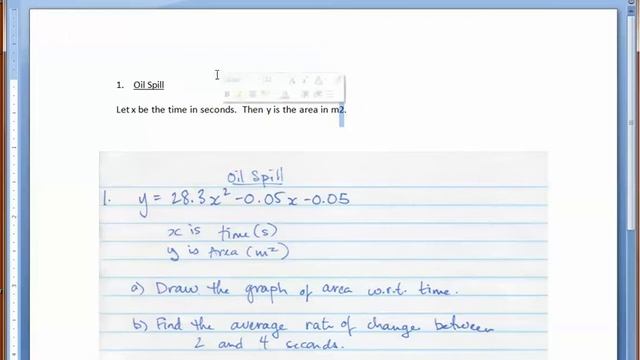 1. Oil Spill
Let x be the time in seconds. Then y is the area in m2.
Oil Spill
1. y = 28.3x² -0.05x -0.05
x is time (s)
y is Area (m²)
a) Draw the graph of area w.r.t. time.
b) Find the average rate of change between
2 and 4 seconds.